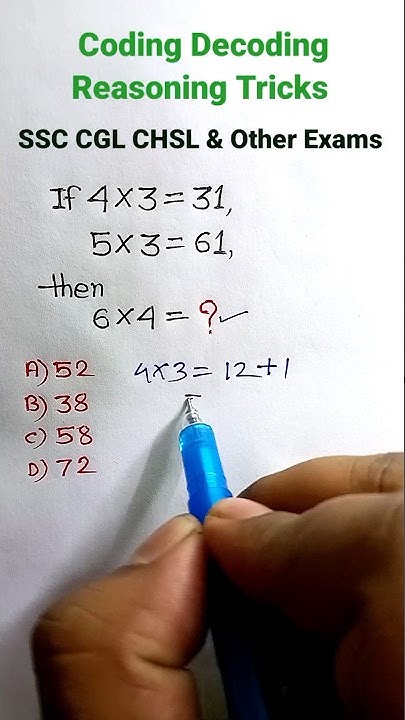 Coding Decoding
Reasoning Tricks
SSC CGL CHSL & Other Exams
If 4×3=31,
5×3=61,
then
6×4=?✓
A) 52
B) 38
C) 58
D) 72
4×3=12+1
=